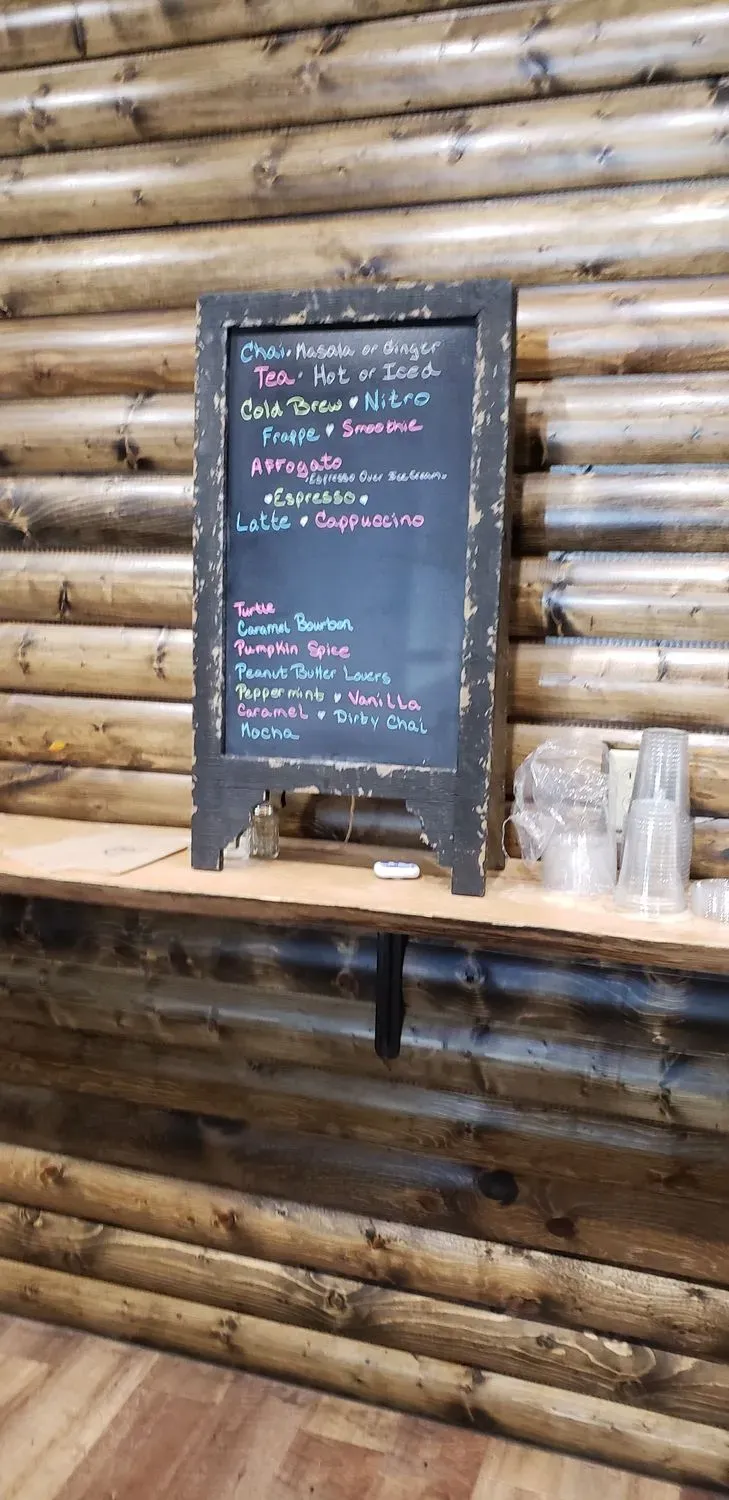 Chai • Masala or Ginger
Tea • Hot or Iced
Cold Brew ♥ Nitro
Frappe ♥ Smoothie
Affogato
•Espresso Over Ice Cream•
•Espresso•
Latte ♥ Cappuccino
Turtle
Caramel Bourbon
Pumpkin Spice
Peanut Butter Lovers
Peppermint ♥ Vanilla
Caramel ♥ Dirty Chai
Mocha